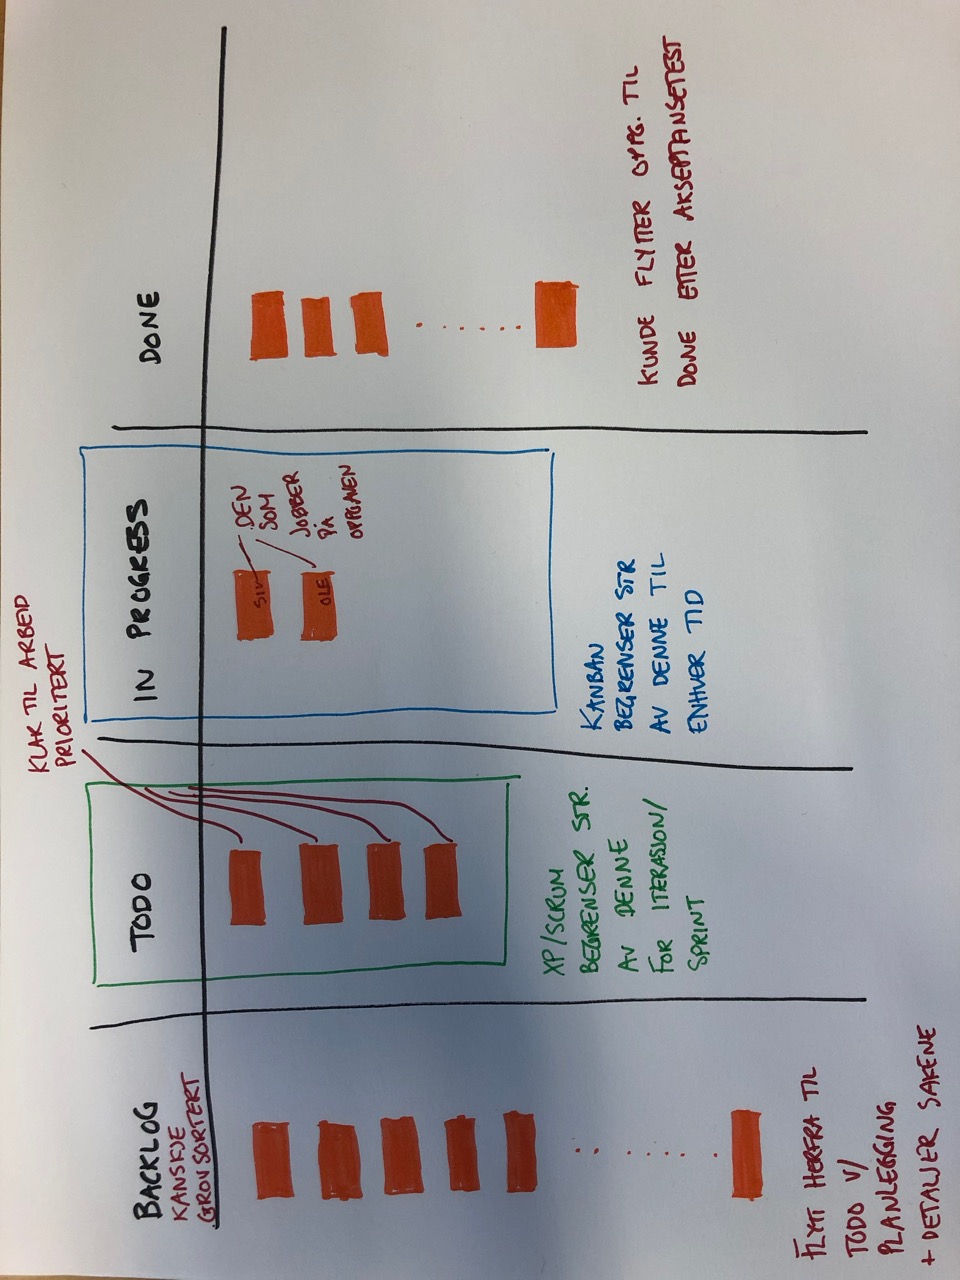 BACKLOG
KANSKJE
GROVSORTERT
FLYTT HERFRA TIL
TODO V/
PLANLEGGING
+ DETALJER SAKENE
TODO
KLAR TIL ARBEID
PRIORITERT
XP/SCRUM
BEGRENSER STR.
AV DENNE
FOR ITERASJON/
SPRINT
IN PROGRESS
SIV
OLE
DEN
SOM
JOBBER
PÅ
OPPGAVEN
KANBAN
BEGRENSER STR
AV DENNE TIL
ENHVER TID
DONE
KUNDE FLYTTER OPPG. TIL
DONE ETTER AKSEPTANSETEST